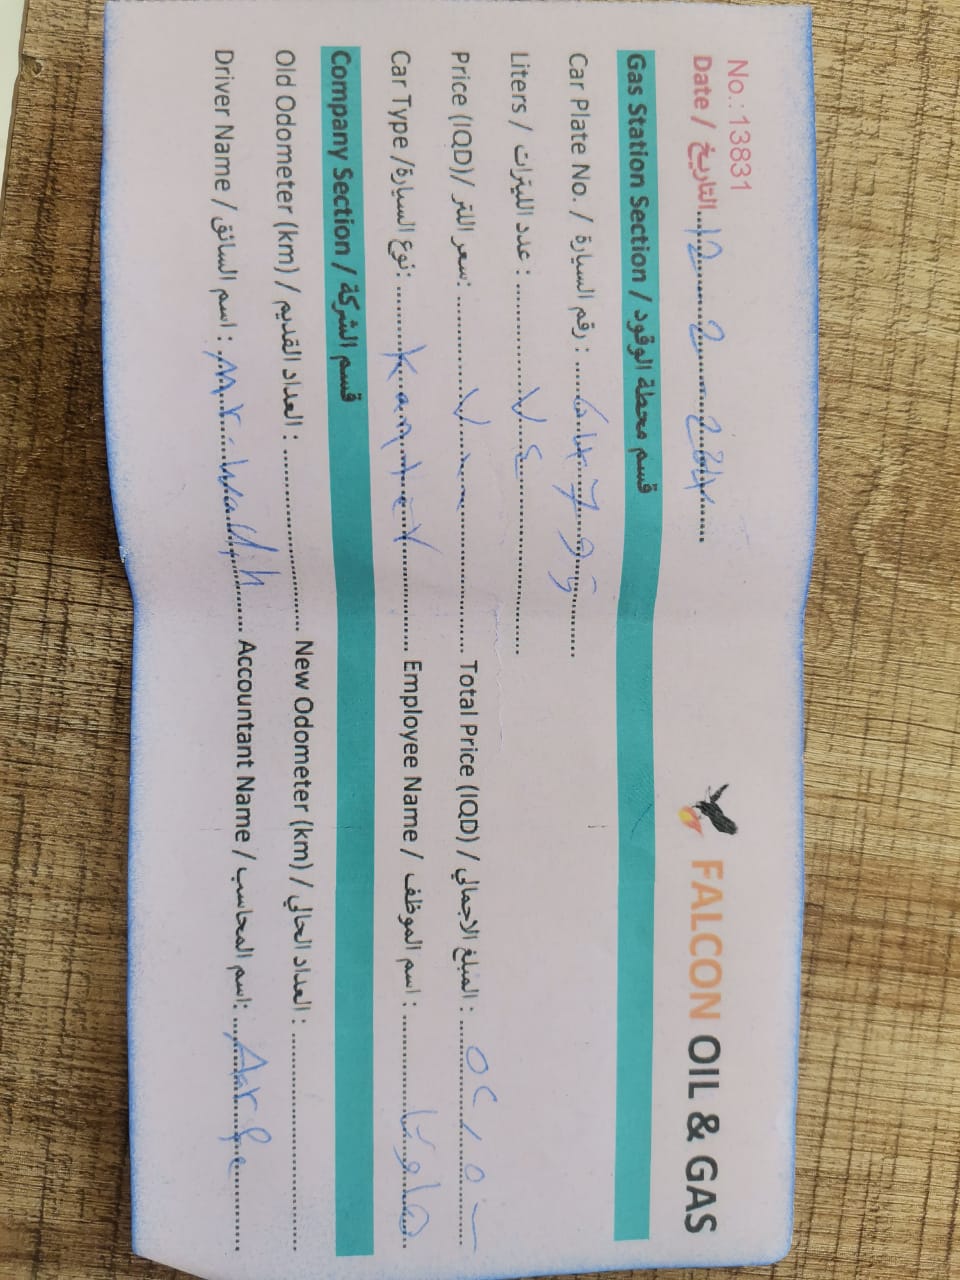 No.: 13831
FALCON OIL & GAS
Date / التاريخ.....12.....2.....
Gas Station Section / قسم محطة الوقود
Car Plate No. / رقم السيارة :
Liters / عدد الليترات : ٧٤
Price (IQD)/ سعر اللتر: Total Price (IQD) / المبلغ الاجمالي :
Car Type /نوع السيارة: Kanter Employee Name / اسم الموظف :
Company Section / قسم الشركة
Old Odometer (km) / العداد القديم : New Odometer (km) / العداد الحالي :
Driver Name / اسم السائق : Mr. Accountant Name / اسم المحاسب: